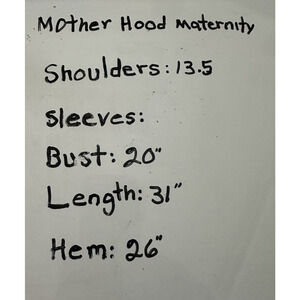 Mother Hood Maternity
Shoulders: 13.5
Sleeves:
Bust: 20"
Length: 31"
Hem: 26"